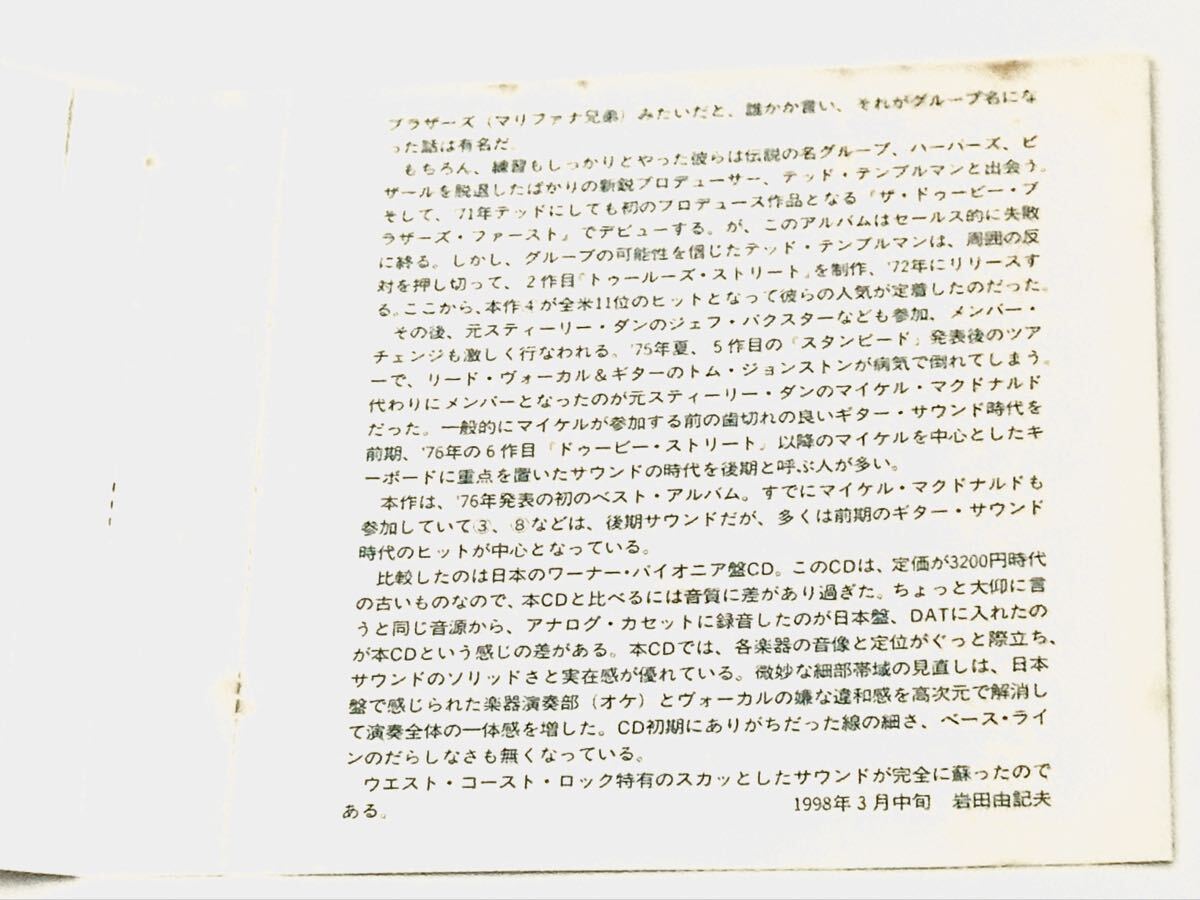 ブラザーズ（マリファナ兄弟）みたいだと、誰かが言い、それがグループ名にな
った話は有名だ。
もちろん、練習もしっかりとやった彼らは伝説の名グループ、ハーパーズ、ビ
ザールを脱退したばかりの新鋭プロデューサー、テッド・テンプルマンと出会う。
そして、'71年テッドにしても初のプロデュース作品となる『ザ・ドゥービー・ブ
ラザーズ・ファースト』でデビューする。が、このアルバムはセールス的に失敗
に終る。しかし、グループの可能性を信じたテッド・テンプルマンは、周囲の反
対を押し切って、2作目『トゥールーズ・ストリート』を制作、'72年にリリースす
る。ここから、本作④が全米11位のヒットとなって彼らの人気が定着したのだった。
その後、元スティーリー・ダンのジェフ・バクスターなども参加、メンバー・
チェンジも激しく行なわれる。'75年夏、5作目の『スタンピード』発表後のツア
ーで、リード・ヴォーカル&ギターのトム・ジョンストンが病気で倒れてしまう。
代わりにメンバーとなったのが元スティーリー・ダンのマイケル・マクドナルド
だった。一般的にマイケルが参加する前の歯切れの良いギター・サウンド時代を
前期、'76年の6作目『ドゥービー・ストリート』以降のマイケルを中心としたキ
ーボードに重点を置いたサウンドの時代を後期と呼ぶ人が多い。
本作は、'76年発表の初のベスト・アルバム。すでにマイケル・マクドナルドも
参加していて③、⑧などは、後期サウンドだが、多くは前期のギター・サウンド
時代のヒットが中心となっている。
比較したのは日本のワーナー・パイオニア盤CD。このCDは、定価が3200円時代
の古いものなので、本CDと比べるには音質に差があり過ぎた。ちょっと大仰に言
うと同じ音源から、アナログ・カセットに録音したのが日本盤、DATに入れたの
が本CDという感じの差がある。本CDでは、各楽器の音像と定位がぐっと際立ち、
サウンドのソリッドさと実在感が優れている。微妙な細部帯域の見直しは、日本
盤で感じられた楽器演奏部（オケ）とヴォーカルの嫌な違和感を高次元で解消し
て演奏全体の一体感を増した。CD初期にありがちだった線の細さ、ベース・ライ
ンのだらしなさも無くなっている。
ウエスト・コースト・ロック特有のスカッとしたサウンドが完全に蘇ったので
ある。
1998年3月中旬 岩田由記夫